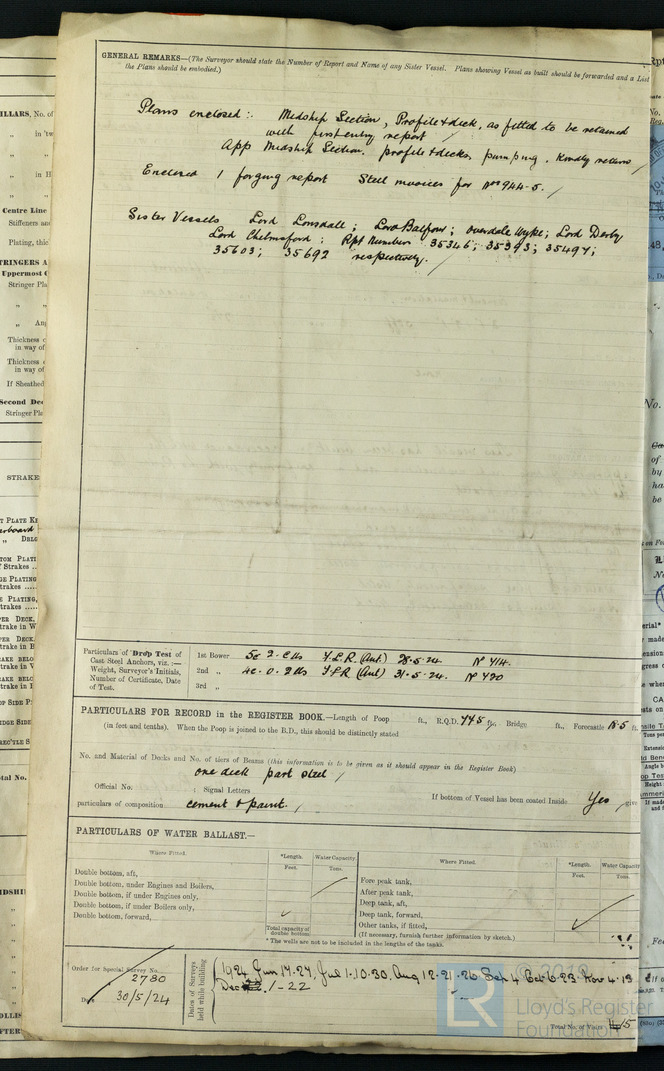 GENERAL REMARKS—(The Surveyor should state the Number of Report and Name of any Sister Vessel. Plans showing Vessel as built should be forwarded and a List
the Plans should be embodied.)
Plans enclosed :. Midship Section, Profile & deck, as fitted to be retained
with first entry report /
App Midship Section. profile & decks, pumping. Kindly return /
Enclosed 1 forging report Steel invoices for Nos 944-5. /
Sister Vessels Lord Lonsdale; Lord Balfour; Overdale Wyke; Lord Derby
Lord Chelmsford : Rpt Numbers 35346; 35393; 35497;
35603; 35692 respectively. /
Particulars of Drop Test of
Cast Steel Anchors, viz. :—
Weight, Surveyor's Initials,
Number of Certificate, Date
of Test.
1st Bower F.L.R. (Ant.) 28.5.24. No 414.
2nd „ F.L.R (Ant) 31.5.24. No 420
3rd „
PARTICULARS FOR RECORD in the REGISTER BOOK.—Length of Poop ft., R.Q.D. ft., Bridge ft., Forecastle ft.
(in feet and tenths). When the Poop is joined to the B.D., this should be distinctly stated
No. and Material of Decks and No. of tiers of Beams (this information is to be given as it should appear in the Register Book)
one deck part steel /
Official No. : Signal Letters
If bottom of Vessel has been coated Inside Yes / give
particulars of composition: cement & paint. /
PARTICULARS OF WATER BALLAST.—
Where Fitted. *Length. Water Capacity Where Fitted. *Length. Water Capacity
Feet. Tons. Feet. Tons.
Double bottom, aft,
Double bottom, under Engines and Boilers,
Double bottom, if under Engines only,
Double bottom, if under Boilers only,
Double bottom, forward,
Total capacity of
double bottom
Fore peak tank,
After peak tank,
Deep tank, aft,
Deep tank, forward,
Other tanks, if fitted,
(If necessary, furnish further information by sketch.)
* The wells are not to be included in the lengths of the tanks.
Order for Special Survey No.
2780
Date 30/5/24
Dates of Surveys
held while building
1924 Jun 17. 27, Jul 1. 10. 30, Aug 12. 21. 26 Sep 4 Oct 6. 23 Nov 4. 13
Dec 1 - 22
LR
Lloyd's Register
Foundation
Total No. of Visits 15